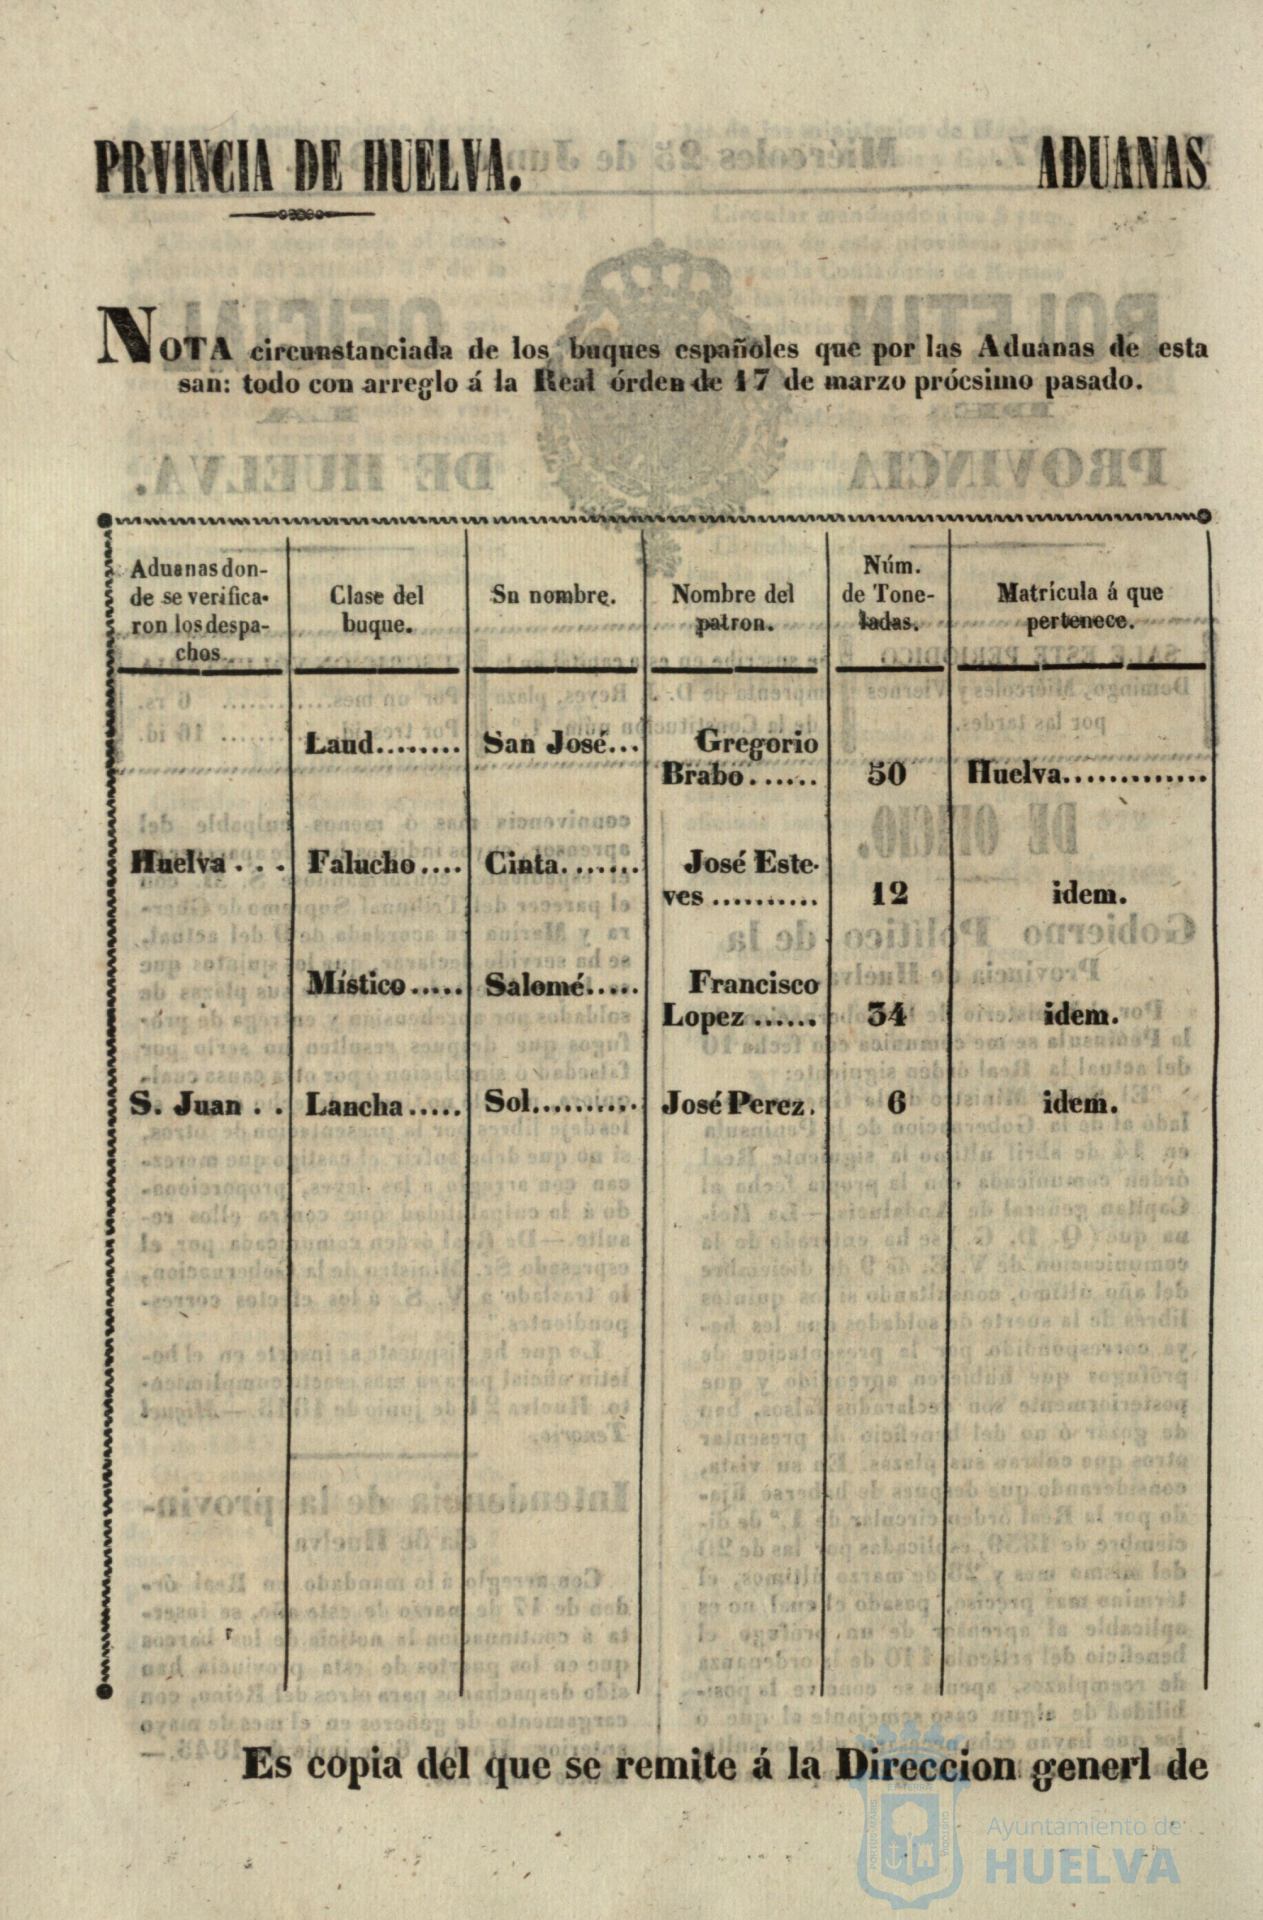 PRVINCIA DE HUELVA. ADUANAS
NOTA circunstanciada de los buques españoles que por las Aduanas de esta
san: todo con arreglo á la Real órden de 17 de marzo prócsimo pasado.
Aduanas don-
de se verifica-
ron los despa-
chos
Clase del
buque.
Sn nombre.
Nombre del
patron.
Núm.
de Tone-
ladas.
Matrícula á que
pertenece.
Laud........ San José... Gregorio
Brabo...... 50 Huelva.............
Huelva... Falucho.... Cinta....... José Este-
ves .......... 12 idem.
Místico..... Salomé..... Francisco
Lopez ...... 34 idem.
S. Juan .. Lancha..... Sol.......... José Perez. 6 idem.
Es copia del que se remite á la Direccion generl de
Ayuntamiento de
HUELVA